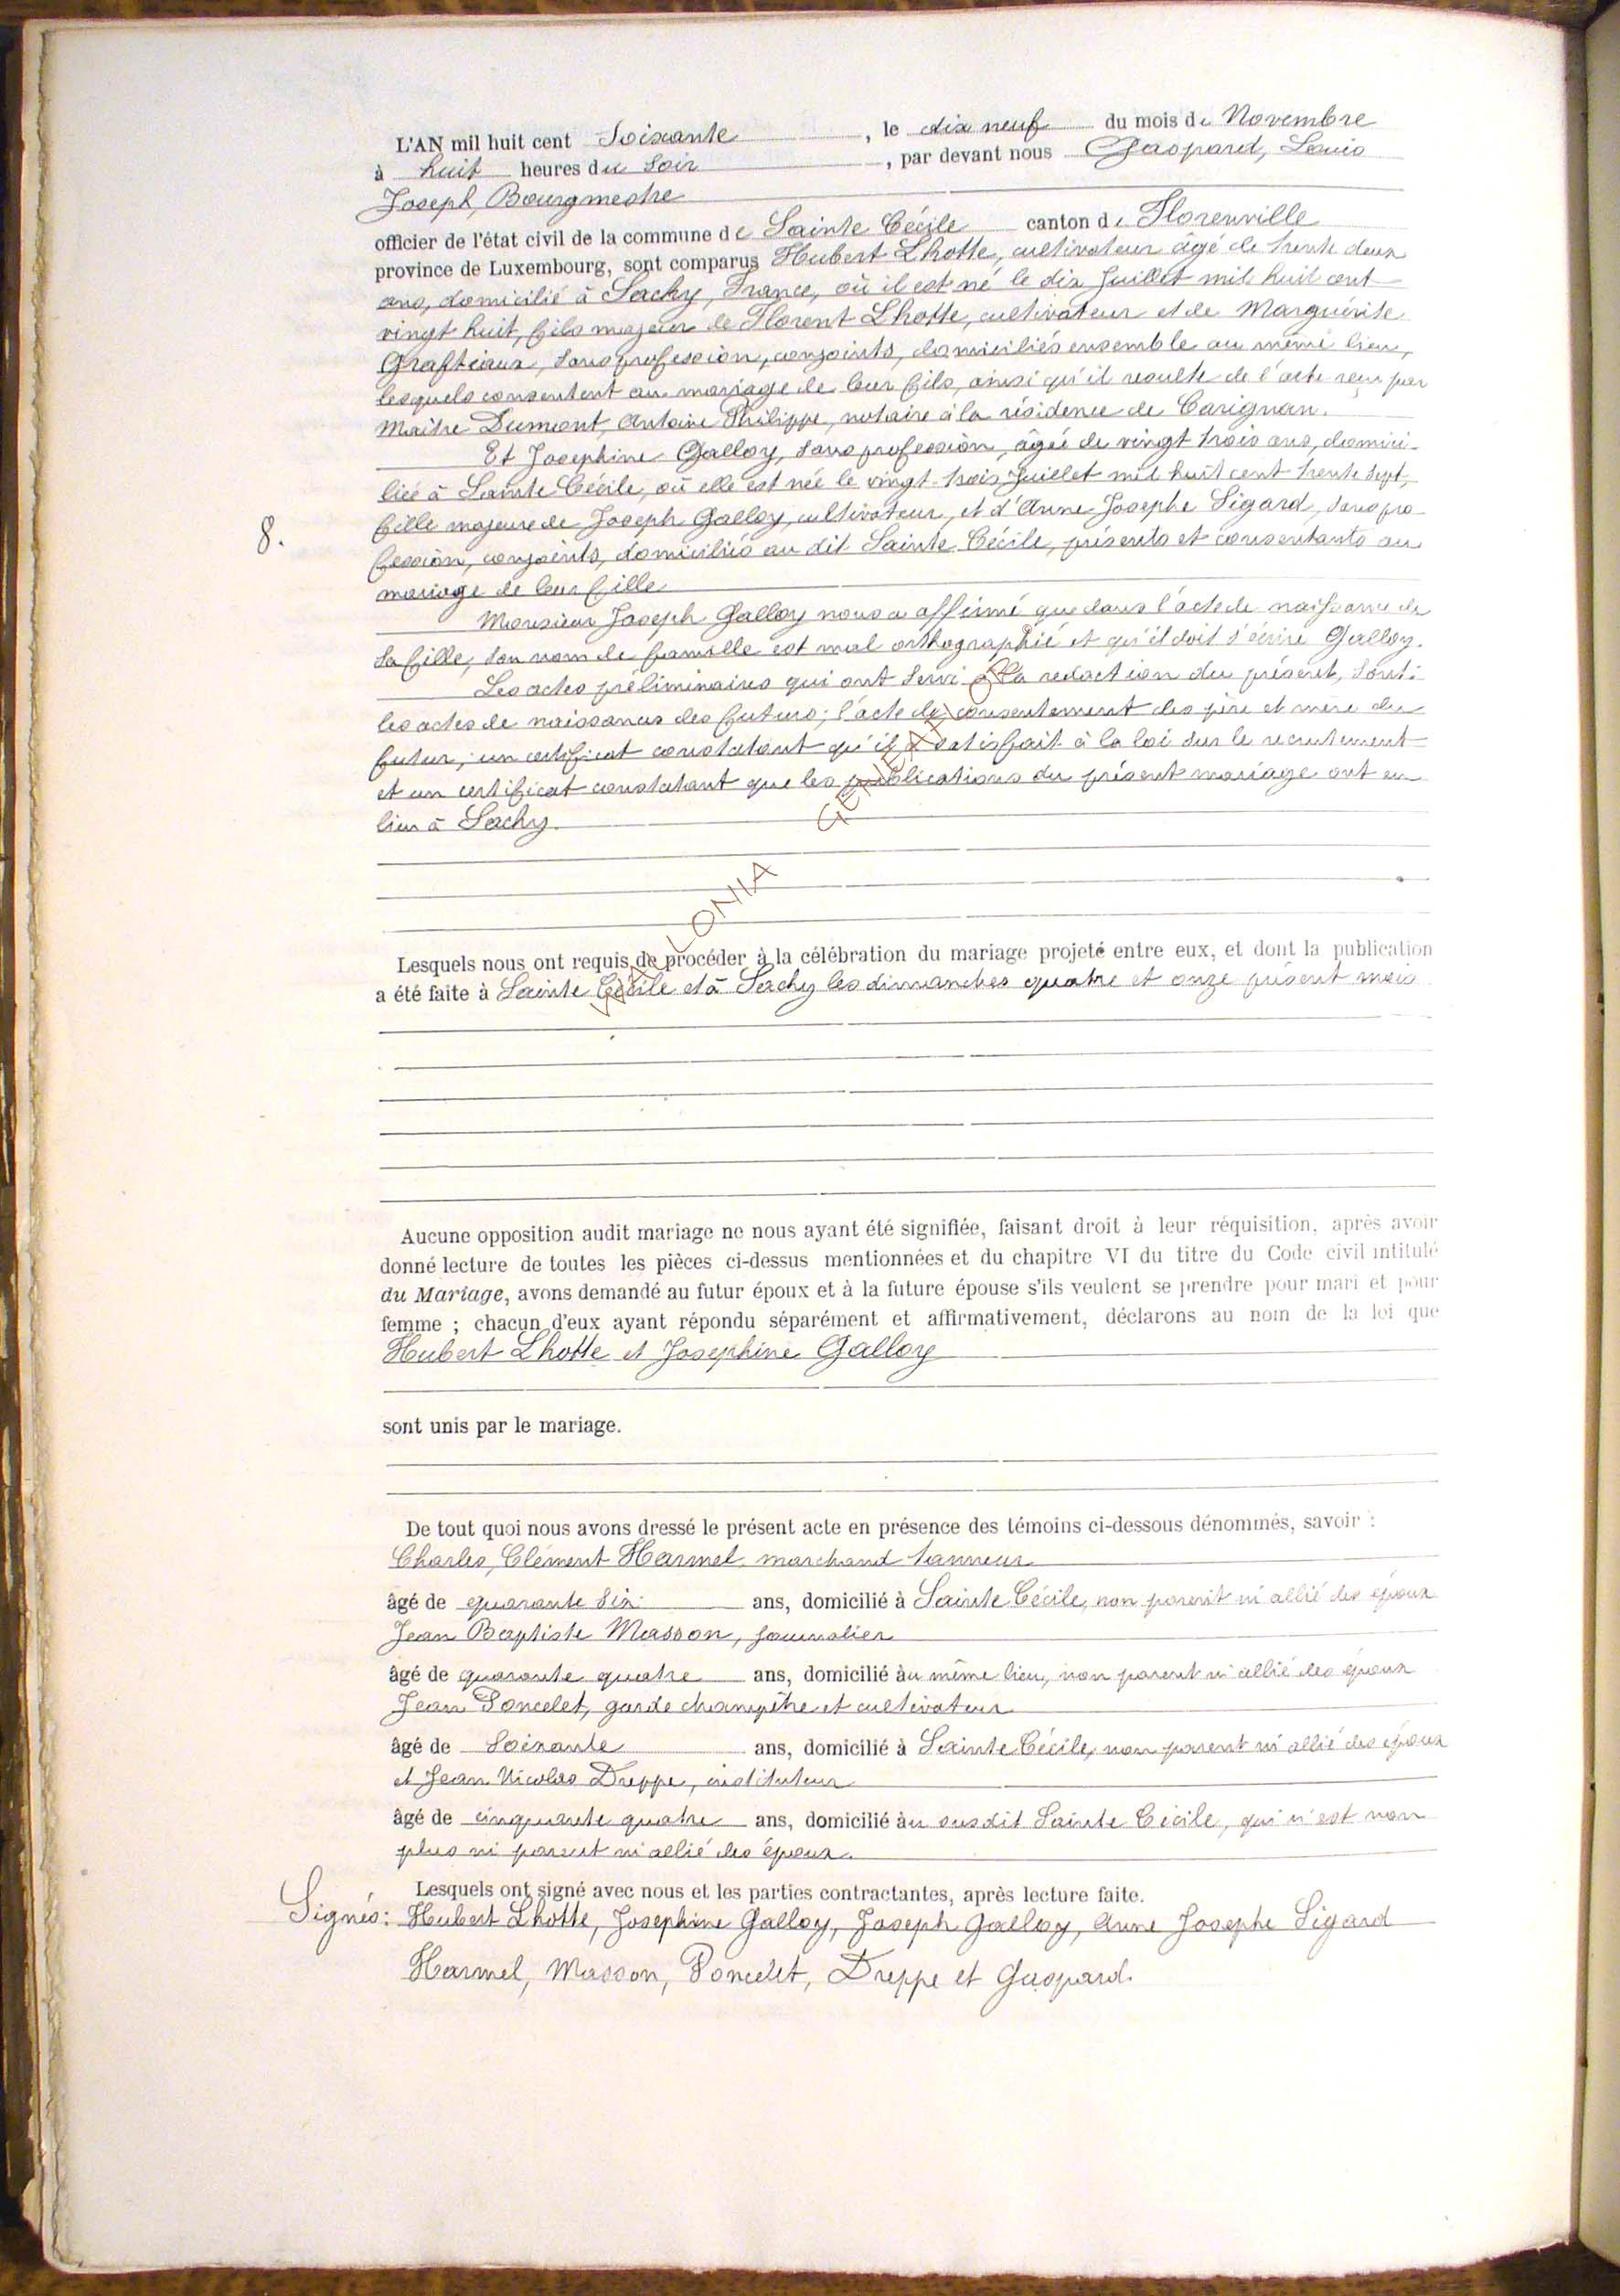 L'AN mil huit cent Soixante, le dix neuf du mois de Novembre
à huit heures du Soir, par devant nous Gaspard, Louis
Joseph, Bourgmestre
officier de l'état civil de la commune de Sainte Cécile canton de Florenville
province de Luxembourg, sont comparus Hubert Lhotte, cultivateur âgé de trente deux
ans, domicilié à Sachy, France, où il est né le dix Juillet mil huit cent
vingt huit, fils majeur de Florent Lhotte, cultivateur et de Marguérite
Grafteaux, sans profession, conjoints, domiciliés ensemble au même lieu,
lesquels consentent au mariage de leur fils, ainsi qu'il resulte de l'acte reçu par
Maitre Dumont, Antoine Philippe, notaire à la résidence de Carignan.
Et Josephine Galloy, sans profession, âgée de vingt trois ans, domici-
liée à Sainte Cécile, où elle est née le vingt-trois Juillet mil huit cent trente sept,
8.
fille majeure de Joseph Galloy, cultivateur, et d'Anne Josephe Sigard, sans pro
fession, conjoints, domiciliés au dit Sainte Cécile, présents et consentants au
mariage de leur fille
Monsieur Joseph Galloy nous a affirmé que dans l'acte de naissance de
sa fille, son nom de famille est mal orthographié et qu'il doit s'écrire Galloy.
Les actes préliminaires qui ont servi à la redaction du présent, sont:
les actes de naissances des futurs; l'acte de consentement des père et mère du
futur; un certificat constatant qu'il a satisfait à la loi sur le recrutement
et un certificat constatant que les publications du présent mariage ont eu
lieu à Sachy.
WALLONIA GENEALOGY
Lesquels nous ont requis de procéder à la célébration du mariage projeté entre eux, et dont la publication
a été faite à Sainte Cécile et à Sachy les dimanches quatre et onze présent mois
Aucune opposition audit mariage ne nous ayant été signifiée, faisant droit à leur réquisition, après avoir
donné lecture de toutes les pièces ci-dessus mentionnées et du chapitre VI du titre du Code civil intitulé
du Mariage, avons demandé au futur époux et à la future épouse s'ils veulent se prendre pour mari et pour
femme ; chacun d'eux ayant répondu séparément et affirmativement, déclarons au nom de la loi que
Hubert Lhotte et Josephine Galloy
sont unis par le mariage.
De tout quoi nous avons dressé le présent acte en présence des témoins ci-dessous dénommés, savoir :
Charles, Clément Harmel, marchand tanneur
âgé de quarante six ans, domicilié à Sainte Cécile, non parent ni allié des époux
Jean Baptiste Masson, journalier
âgé de quarante quatre ans, domicilié au même lieu, non parent ni allié des époux
Jean Poncelet, garde champêtre et cultivateur
âgé de Soixante ans, domicilié à Sainte Cécile, non parent ni allié des époux
et Jean Nicolas Dreppe, instituteur
âgé de cinquante quatre ans, domicilié au susdit Sainte Cécile, qui n'est non
plus ni parent ni allié des époux.
Lesquels ont signé avec nous et les parties contractantes, après lecture faite.
Signés: Hubert Lhotte, Josephine Galloy, Joseph Galloy, Anne Josephe Sigard
Harmel, Masson, Poncelet, Dreppe et Gaspard.